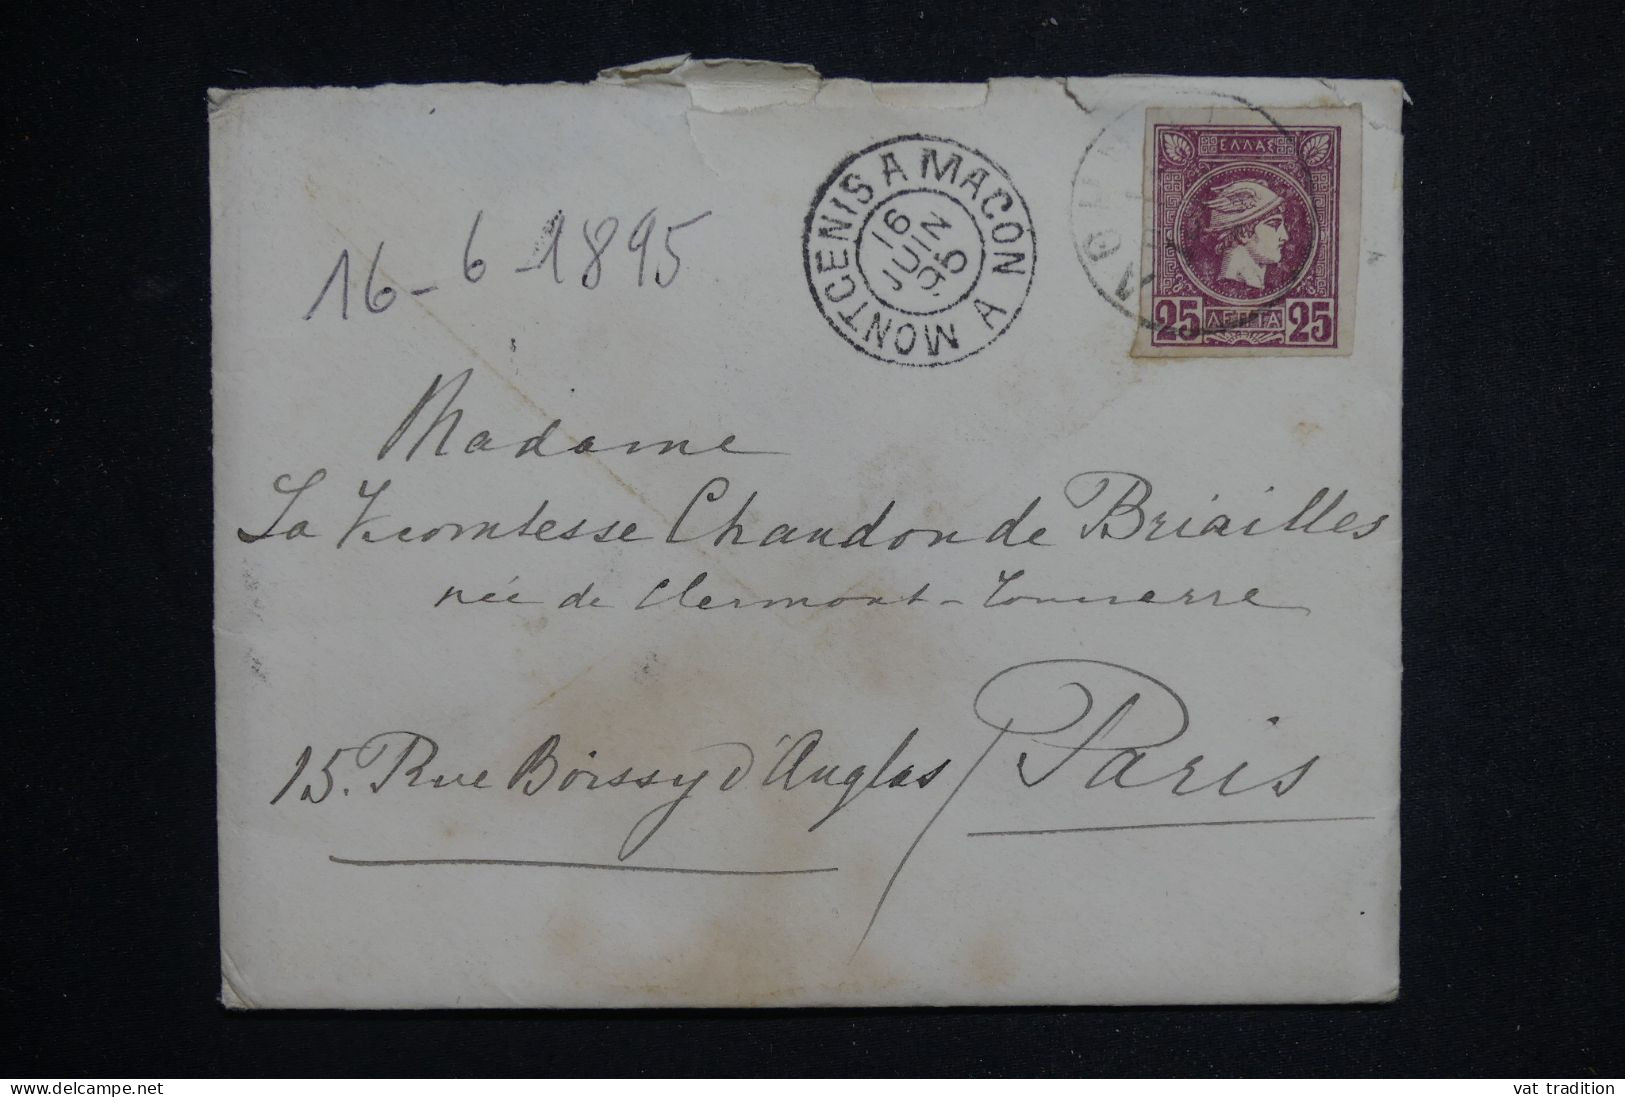 ΕΛΛΑΣ
25 ΛΕΠΤΑ 25
ΑΘΗΝΑΙ
MONTCENIS A MACON A
16
JUIN
95
16-6-1895
Madame
La Vcomtesse Chandon de Briailles
née de Clermont-Tonnerre
15. Rue Boissy d'Anglas / Paris
delcampe.net
vat tradition